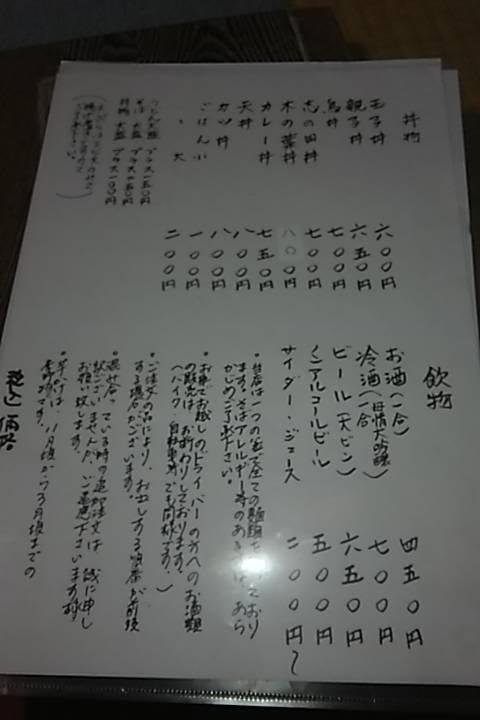 丼物
玉子丼 六〇〇円
親子丼 六五〇円
鳥丼 七〇〇円
志の田丼 七〇〇円
木の葉丼 八〇〇円
カレー丼 七五〇円
天丼 八〇〇円
カツ丼 八〇〇円
ごはん小 一〇〇円
〃 大 二〇〇円
うどん大盛 プラス一五〇円
そば 大盛 プラス二五〇円
丼物 大盛 プラス一〇〇円
飲物
お酒(一合) 四五〇円
冷酒(一合) 七〇〇円
ビール(大ビン) 六五〇円
ノンアルコールビール 五〇〇円
サイダー・ジュース 二〇〇円〜
・当店は一つの釜で全ての麺類を
ます。そばアレルギー等のある
かじめご了承下さい。
・お車でお越しのドライバーの方へのお酒類
の販売は、お断わりしております。
(バイク、自転車等でも同様です。)
・ご注文の品により、お出しする順番が前後
する場合がございます。
・混み合っている時の追加注文は、誠に申し
訳ございませんが、ご遠慮下さいます様
お願い致します。
11月頃から3月頃までの
季節物です。
税込価格